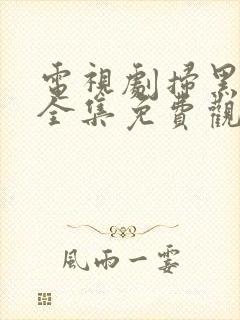 電視劇掃黑
全集免費觀
風雨一霎